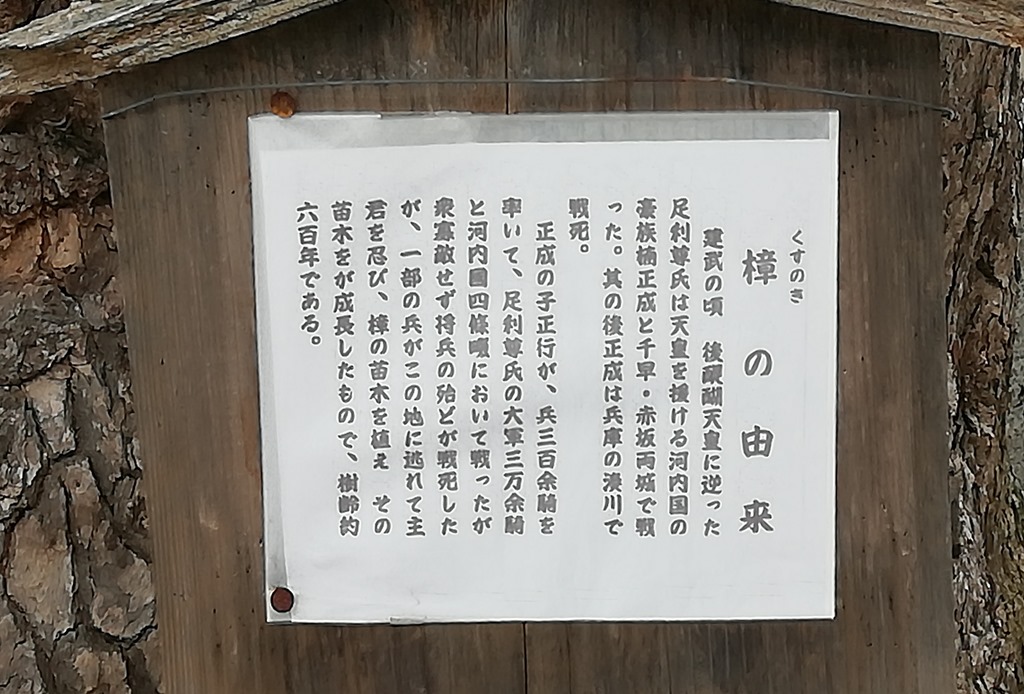 くすのき
樟の由来
建武の頃　後醍醐天皇に逆った
足利尊氏は天皇を援ける河内国の
豪族楠正成と千早・赤坂両城で戦
った。其の後正成は兵庫の湊川で
戦死。
正成の子正行が、兵三百余騎を
率いて、足利尊氏の大軍三万余騎
と河内国四條畷において戦ったが
衆寡敵せず将兵の殆どが戦死した
が、一部の兵がこの地に逃れて主
君を忍び、樟の苗木を植え　その
苗木をが成長したもので、樹齢約
六百年である。